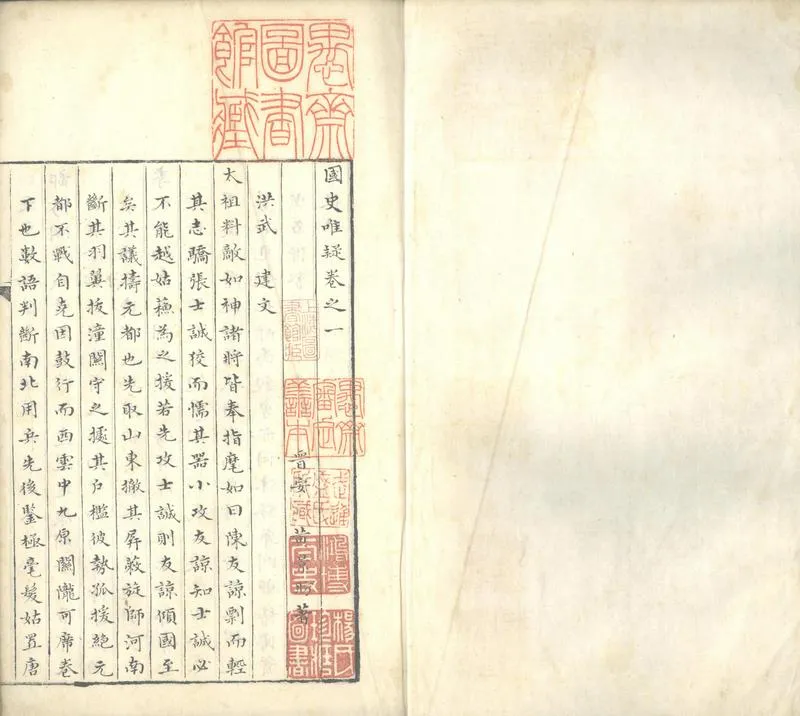 愚齋圖書館藏
國史唯疑卷之一
晉安黃景昉著
洪武 建文
太祖料敵如神諸將皆奉指麾如曰陳友諒剽而輕
其志驕張士誠狡而懦其器小攻友諒知士誠必
不能越姑蘇為之援若先攻士誠則友諒傾國至
矣其議擣元都也先取山東撤其屏蔽旋師河南
斷其羽翼拔潼關守之據其戶檻彼勢孤援絕元
都不戰自克因鼓行而西雲中九原關隴可席卷
下也數語判斷南北用兵先後鑒極毫髮姑置唐
上海圖書館藏
愚齋審定善本